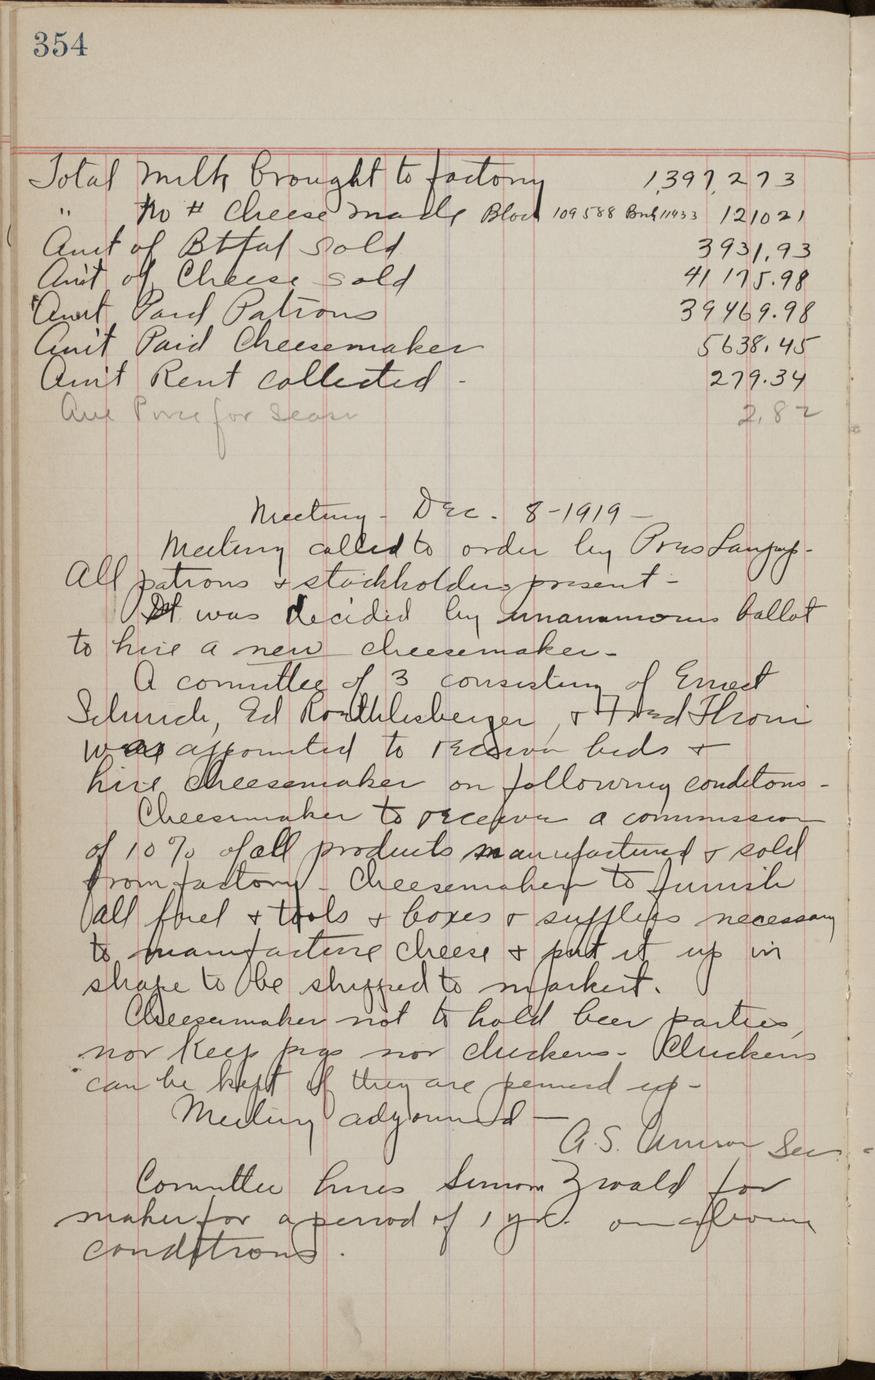 354
Total Milk brought to factory 1,397,273
" No # Cheese made Block 109588 Brick 11433 121021
Amt of Btfat Sold 3931,93
Am't of Cheese Sold 41175.98
Amt Paid Patrons 39469.98
Am't Paid Cheesemaker 5638.45
Am't Rent collected - 279.34
Ave Price for Season 2.82
Meeting - Dec. 8-1919 -
Meeting called to order by Pres
All patrons & stockholders present -
It was decided by unanimous ballot
to hire a new cheesemaker -
A committee of 3 consisting of Ernest
Ed Roethlisberger, & Fred Thoni
was appointed to receive bids &
hire cheesemaker on following conditons -
Cheesemaker to receive a commission
of 10% of all products manufactured & sold
from factory - Cheesemaker to furnish
all fuel & tools & boxes & supplies necessary
to manufacture cheese & put it up in
shape to be shipped to market.
Cheesemaker not to hold beer parties,
nor keep pigs nor chickens - Chickens
can be kept if they are penned up -
Meeting adjourned -
A.S. Sec.
Committee hires Simon Zwald for
maker for a period of 1 yr. on above
conditions.